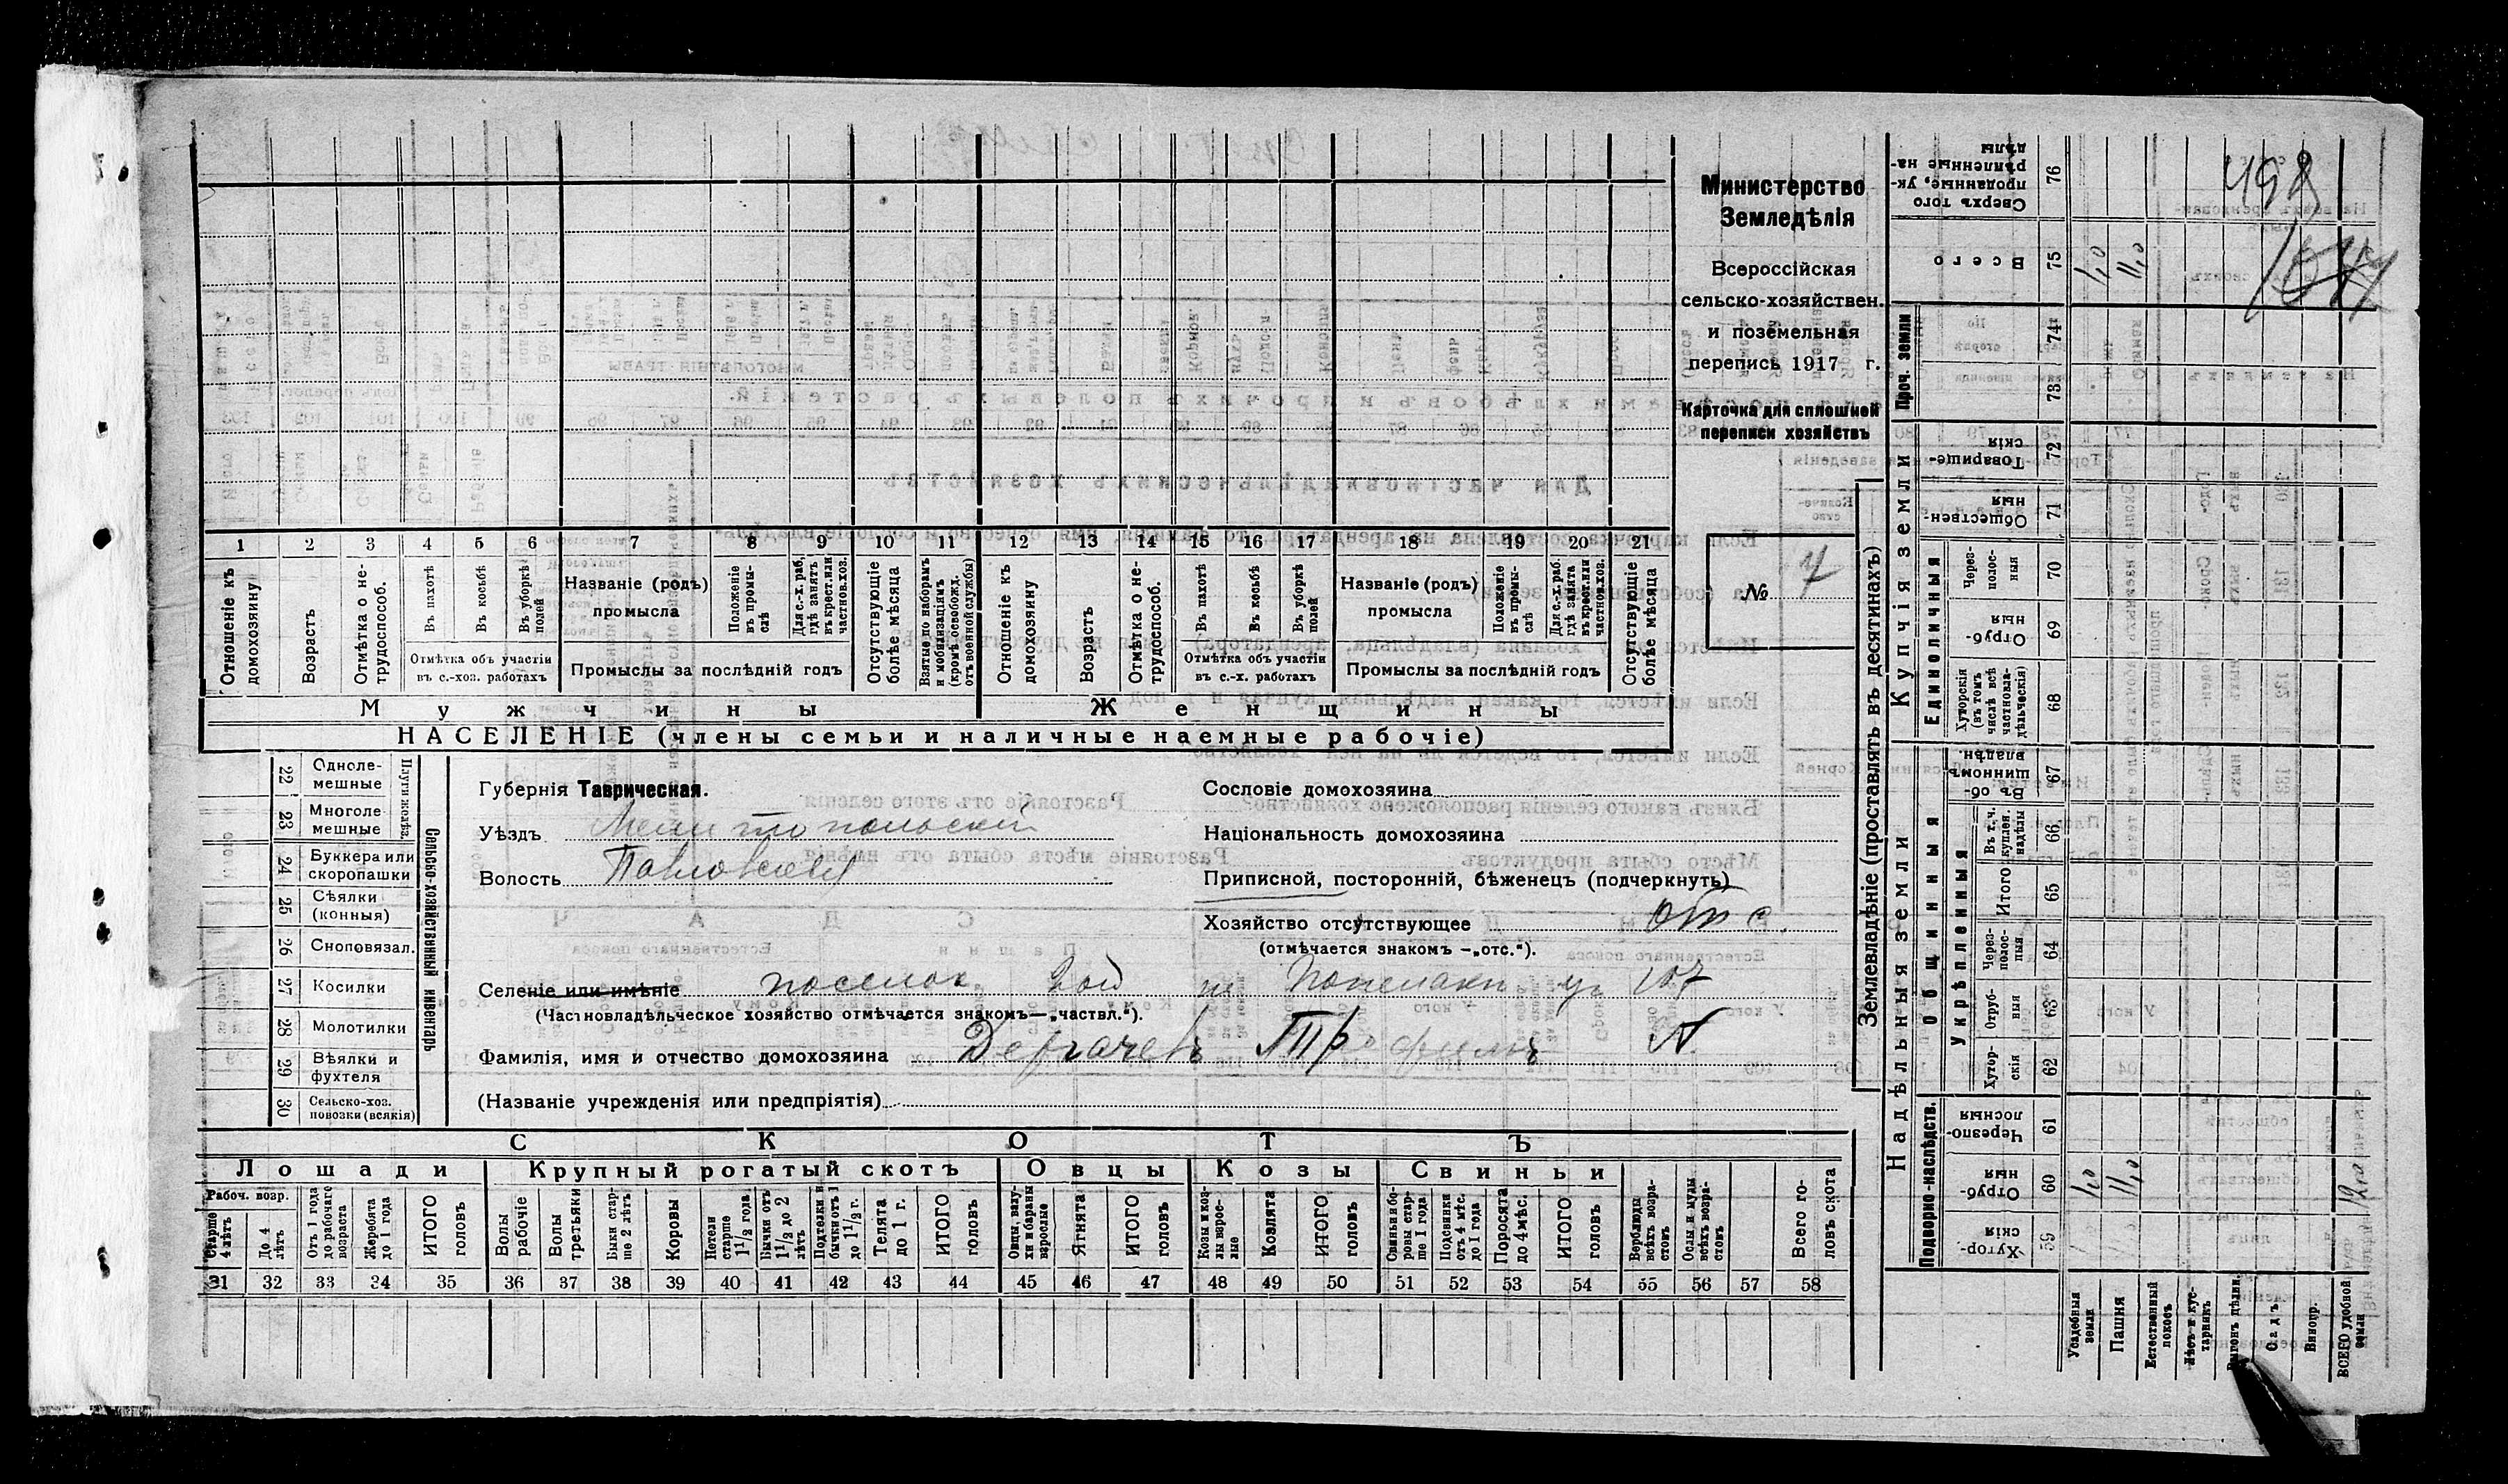 498
Министерство
Земледѣлія
Всероссійская
сельско-хозяйствен.
и поземельная
перепись 1917 г.
Карточка для сплошной
переписи хозяйствъ
№ 7
1 2 3 4 5 6 7 8 9 10 11 12 13 14 15 16 17 18 19 20 21
Отношеніе къ домохозяину
Возрастъ
Отмѣтка о не-трудоспособ.
Въ пахотѣ
Въ косьбѣ
Въ уборкѣ полей
Отмѣтка объ участіи въ с.-хоз. работахъ
Названіе (родъ) промысла
Положеніе въ промы-слѣ
Для с.-х. раб. гдѣ занятъ въ крест. или частнов. хоз.
Промыслы за послѣдній годъ
Отсутствующіе болѣе мѣсяца
Взятые по наборамъ и мобилизаціямъ (кромѣ освобожд. отъ военной службы)
Отношеніе къ домохозяину
Возрастъ
Отмѣтка о не-трудоспособ.
Въ пахотѣ
Въ косьбѣ
Въ уборкѣ полей
Отмѣтка объ участіи въ с.-х. работахъ
Названіе (родъ) промысла
Положеніе въ промы-слѣ
Для с.-х. раб. гдѣ занята въ крест. или частнов. хоз.
Промыслы за послѣдній годъ
Отсутствующіе болѣе мѣсяца
Мужчины Женщины
НАСЕЛЕНІЕ (члены семьи и наличные наемные рабочіе)
Сельско-хозяйственный инвентарь
Плуги желѣз.
22 Одноле-мешные
23 Многоле мешные
24 Буккера или скоропашки
25 Сѣялки (конныя)
26 Сноповязал.
27 Косилки
28 Молотилки
29 Вѣялки и фухтеля
30 Сельско-хоз. повозки (всякія)
Губернія Таврическая.
Уѣздъ Мелитопольскій
Волость Павловская
Сословіе домохозяина
Національность домохозяина
Приписной, посторонній, бѣженецъ (подчеркнуть)
Хозяйство отсутствующее отс.
(отмѣчается знакомъ —„отс.“).
Селеніе или имѣніе поселок
(Частновладѣльческое хозяйство отмѣчается знакомъ—„частвл.“).
Фамилія, имя и отчество домохозяина Дергачевъ Трофимъ А.
(Названіе учрежденія или предпріятія)
СКОТЪ
Лошади Крупный рогатый скотъ Овцы Козы Свиньи
Рабоч. возр.
Старше 4 лѣтъ
До 4 лѣтъ
Отъ 1 года до рабочаго возраста
Жеребята до 1 года
ИТОГО головъ
Волы рабочіе
Волы третьяки
Быки стар-ше 2 лѣтъ
Коровы
Нетели старше 1 1/2 года
Бычки отъ 1 1/2 до 2 лѣтъ
Подтелки и бычки отъ 1 до 1 1/2 г.
Телята до 1 г.
ИТОГО головъ
Овцы, валу-хи и бараны взрослые
Ягнята
ИТОГО головъ
Козы и коз-лы взрос-лые
Козлята
ИТОГО головъ
Свиньи и бо-ровы стар-ше 1 года
Подсвинки отъ 4 мѣс. до 1 года
Поросята до 4 мѣс.
ИТОГО головъ
Верблюды всѣхъ возра-стовъ
Ослы и мулы всѣхъ возра-стовъ
Всего го-ловъ скота
31 32 33 34 35 36 37 38 39 40 41 42 43 44 45 46 47 48 49 50 51 52 53 54 55 56 57 58
Землевладѣніе (проставлять въ десятинахъ)
Надѣльныя земли
Подворно-наслѣдств.
59 Хутор-скія
60 Отруб-ныя 1,0 11,0
61 Черезпо-лосныя
Общинныя
Укрѣпленныя
62 Хутор-скія
63 Отруб-ныя
64 Через-полос-ныя
65 Итого
66 Въ т. ч. куплен. надѣлы
67 Въ об-щинномъ владѣн.
Купчія земли
Единоличныя
68 Хуторскія (въ томъ числѣ всѣ частновла-дѣльческія)
69 Отруб-ныя
70 Через-полос-ныя
71 Обществен-ныя
72 Товарище-скія
Проч. земли
73
74
75 Всего 1,0 11,0
76 Сверхъ того проданные, ук-рѣпленные на-дѣлы
Усадебныя земли
Пашня
Естественный покосъ
Лѣсъ и кус-тарникъ
Выгонъ дѣлин.
Садъ
Виногр.
ВСЕГО удобной земли